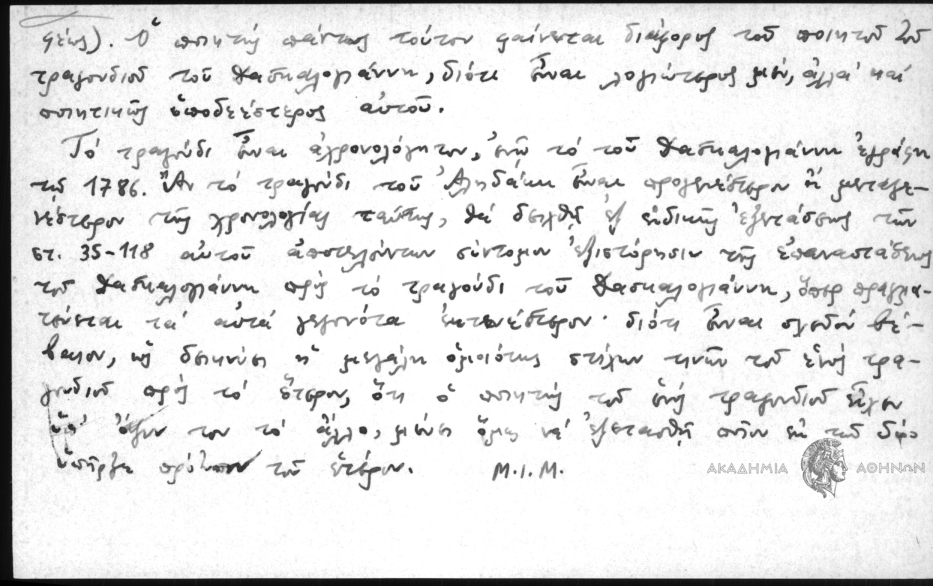 φέως). Ὁ ποιητὴς πάντως τούτου φαίνεται διάφορος τοῦ ποιητοῦ τοῦ
τραγουδιοῦ τοῦ Δασκαλογιάννη, διότι εἶναι λογιώτερος μέν, ἀλλὰ καὶ
ποιητικῶς ὑποδεέστερος αὐτοῦ.
Τὸ τραγούδι εἶναι ἀχρονολόγητον, ἐνῷ τὸ τοῦ Δασκαλογιάννη ἐγράφη
τῷ 1786. Ἂν τὸ τραγούδι τοῦ Ἀληδάκη εἶναι προγενέστερον ἢ μεταγε-
νέστερον τῆς χρονολογίας ταύτης, θὰ δειχθῇ ἐξ εἰδικῆς ἐξετάσεως τῶν
στ. 35-118 αὐτοῦ ἀποτελούντων σύντομον ἐξιστόρησιν τῆς ἐπαναστάσεως
τοῦ Δασκαλογιάννη πρὸς τὸ τραγούδι τοῦ Δασκαλογιάννη, ὅπερ πραγμα-
τεύεται τὰ αὐτὰ γεγονότα ἐκτενέστερον· διότι εἶναι σχεδὸν βέ-
βαιον, ὡς δεικνύει ἡ μεγάλη ὁμοιότης στίχων τινῶν τοῦ ἑνὸς τρα-
γουδιοῦ πρὸς τὸ ἕτερον, ὅτι ὁ ποιητὴς τοῦ ἑνὸς τραγουδιοῦ εἶχεν
ὑπ' ὄψιν του τὸ ἄλλο, μένει ὅμως νὰ ἐξετασθῇ ποῖον ἐκ τῶν δύο
ὑπῆρξε πρότυπον τοῦ ἑτέρου. Μ.Ι.Μ.
ΑΚΑΔΗΜΙΑ ΑΘΗΝΩΝ